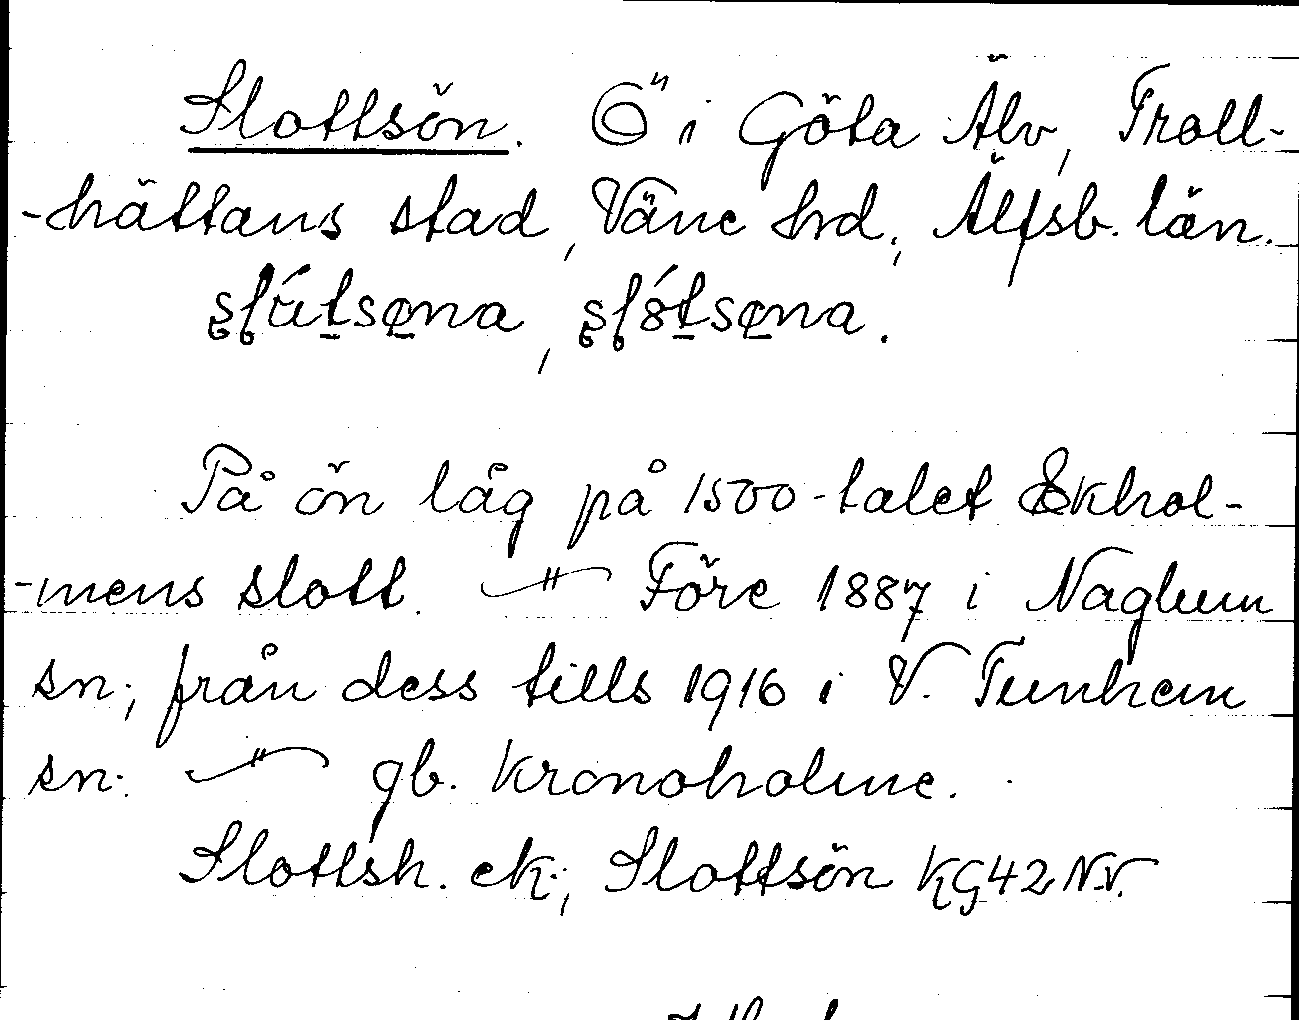 Slottsön. Ö i Göta Älv, Troll-
-hättans stad, Väne hrd., Älfsb. län.
På ön låg på 1500-talet Ekhol-
-mens slott. — " — Före 1887 i Naglum
sn., från dess tills 1916 i V. Tunhem
sn. — " — gb. Kronoholme.
Slottsh. ek., Slottsön KG42 N.V.